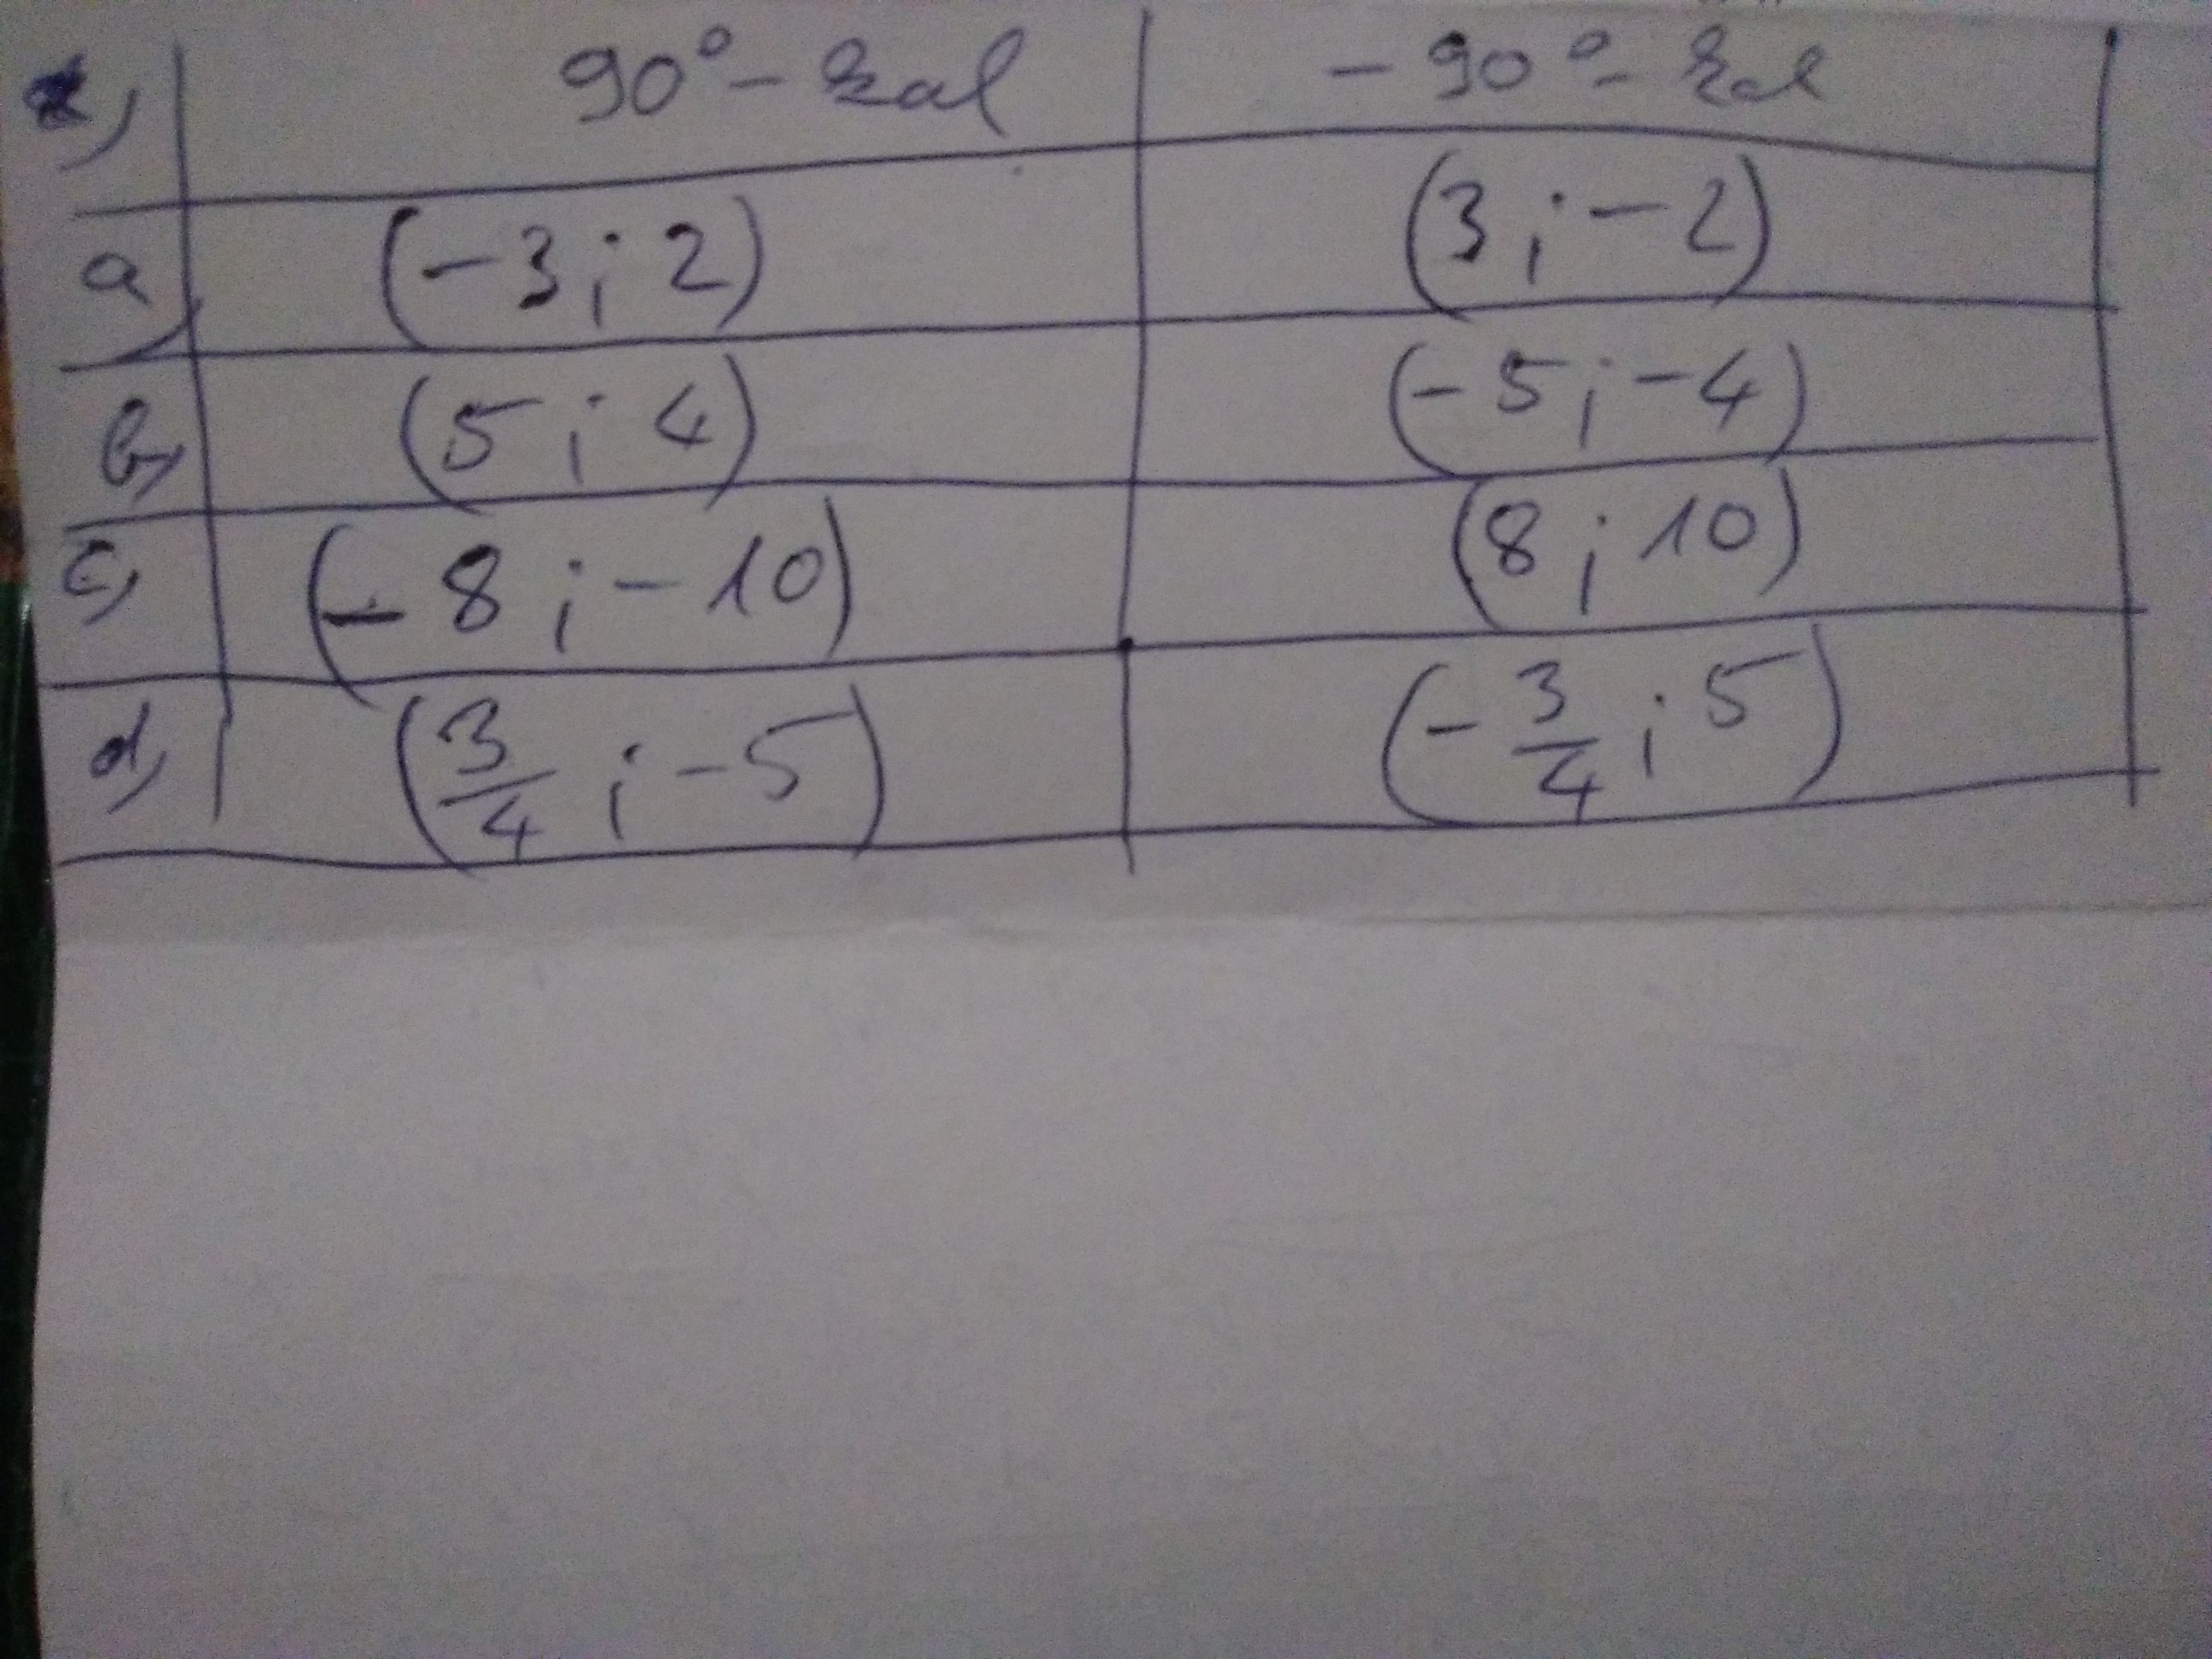 90°-kal -90°-kal
a, (-3; 2) (3; -2)
b, (5; 4) (-5; -4)
c, (-8; -10) (8; 10)
d, (3/4; -5) (-3/4; 5)